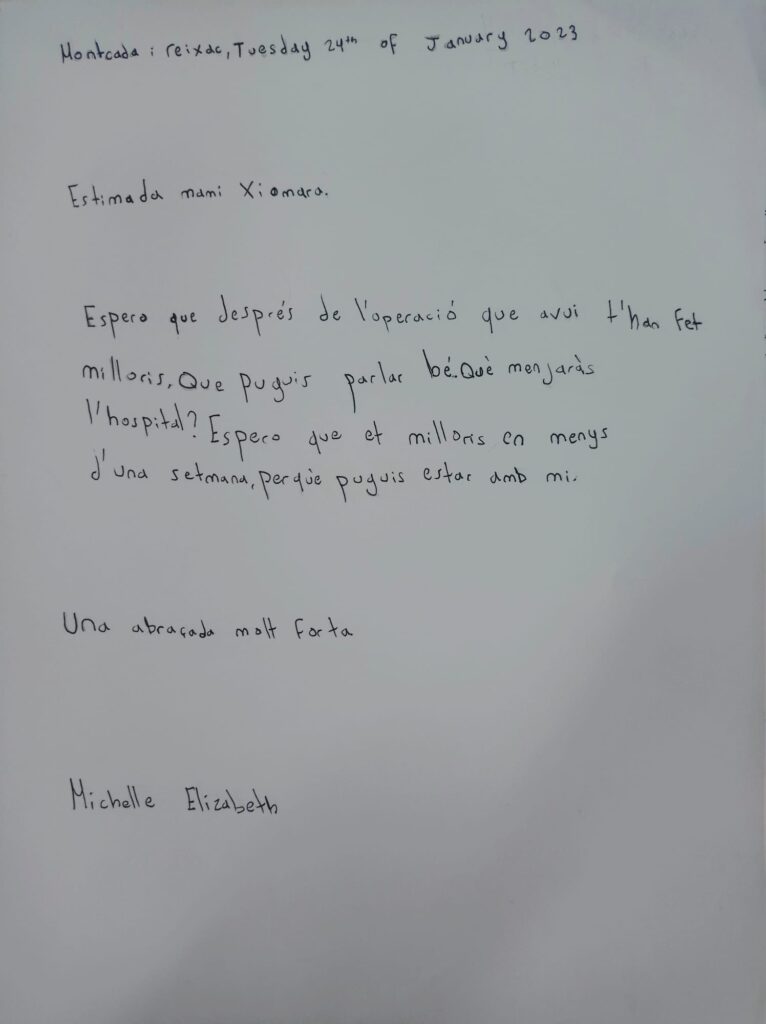 Montcada i reixac, Tuesday 24th of January 2023
Estimada mami Xiomara.
Espero que després de l'operació que avui t'han fet
milloris, Que puguis parlar bé. Què menjaràs
l'hospital? Espero que et milloris en menys
d'una setmana, perquè puguis estar amb mi.
Una abraçada molt forta
Michelle Elizabeth